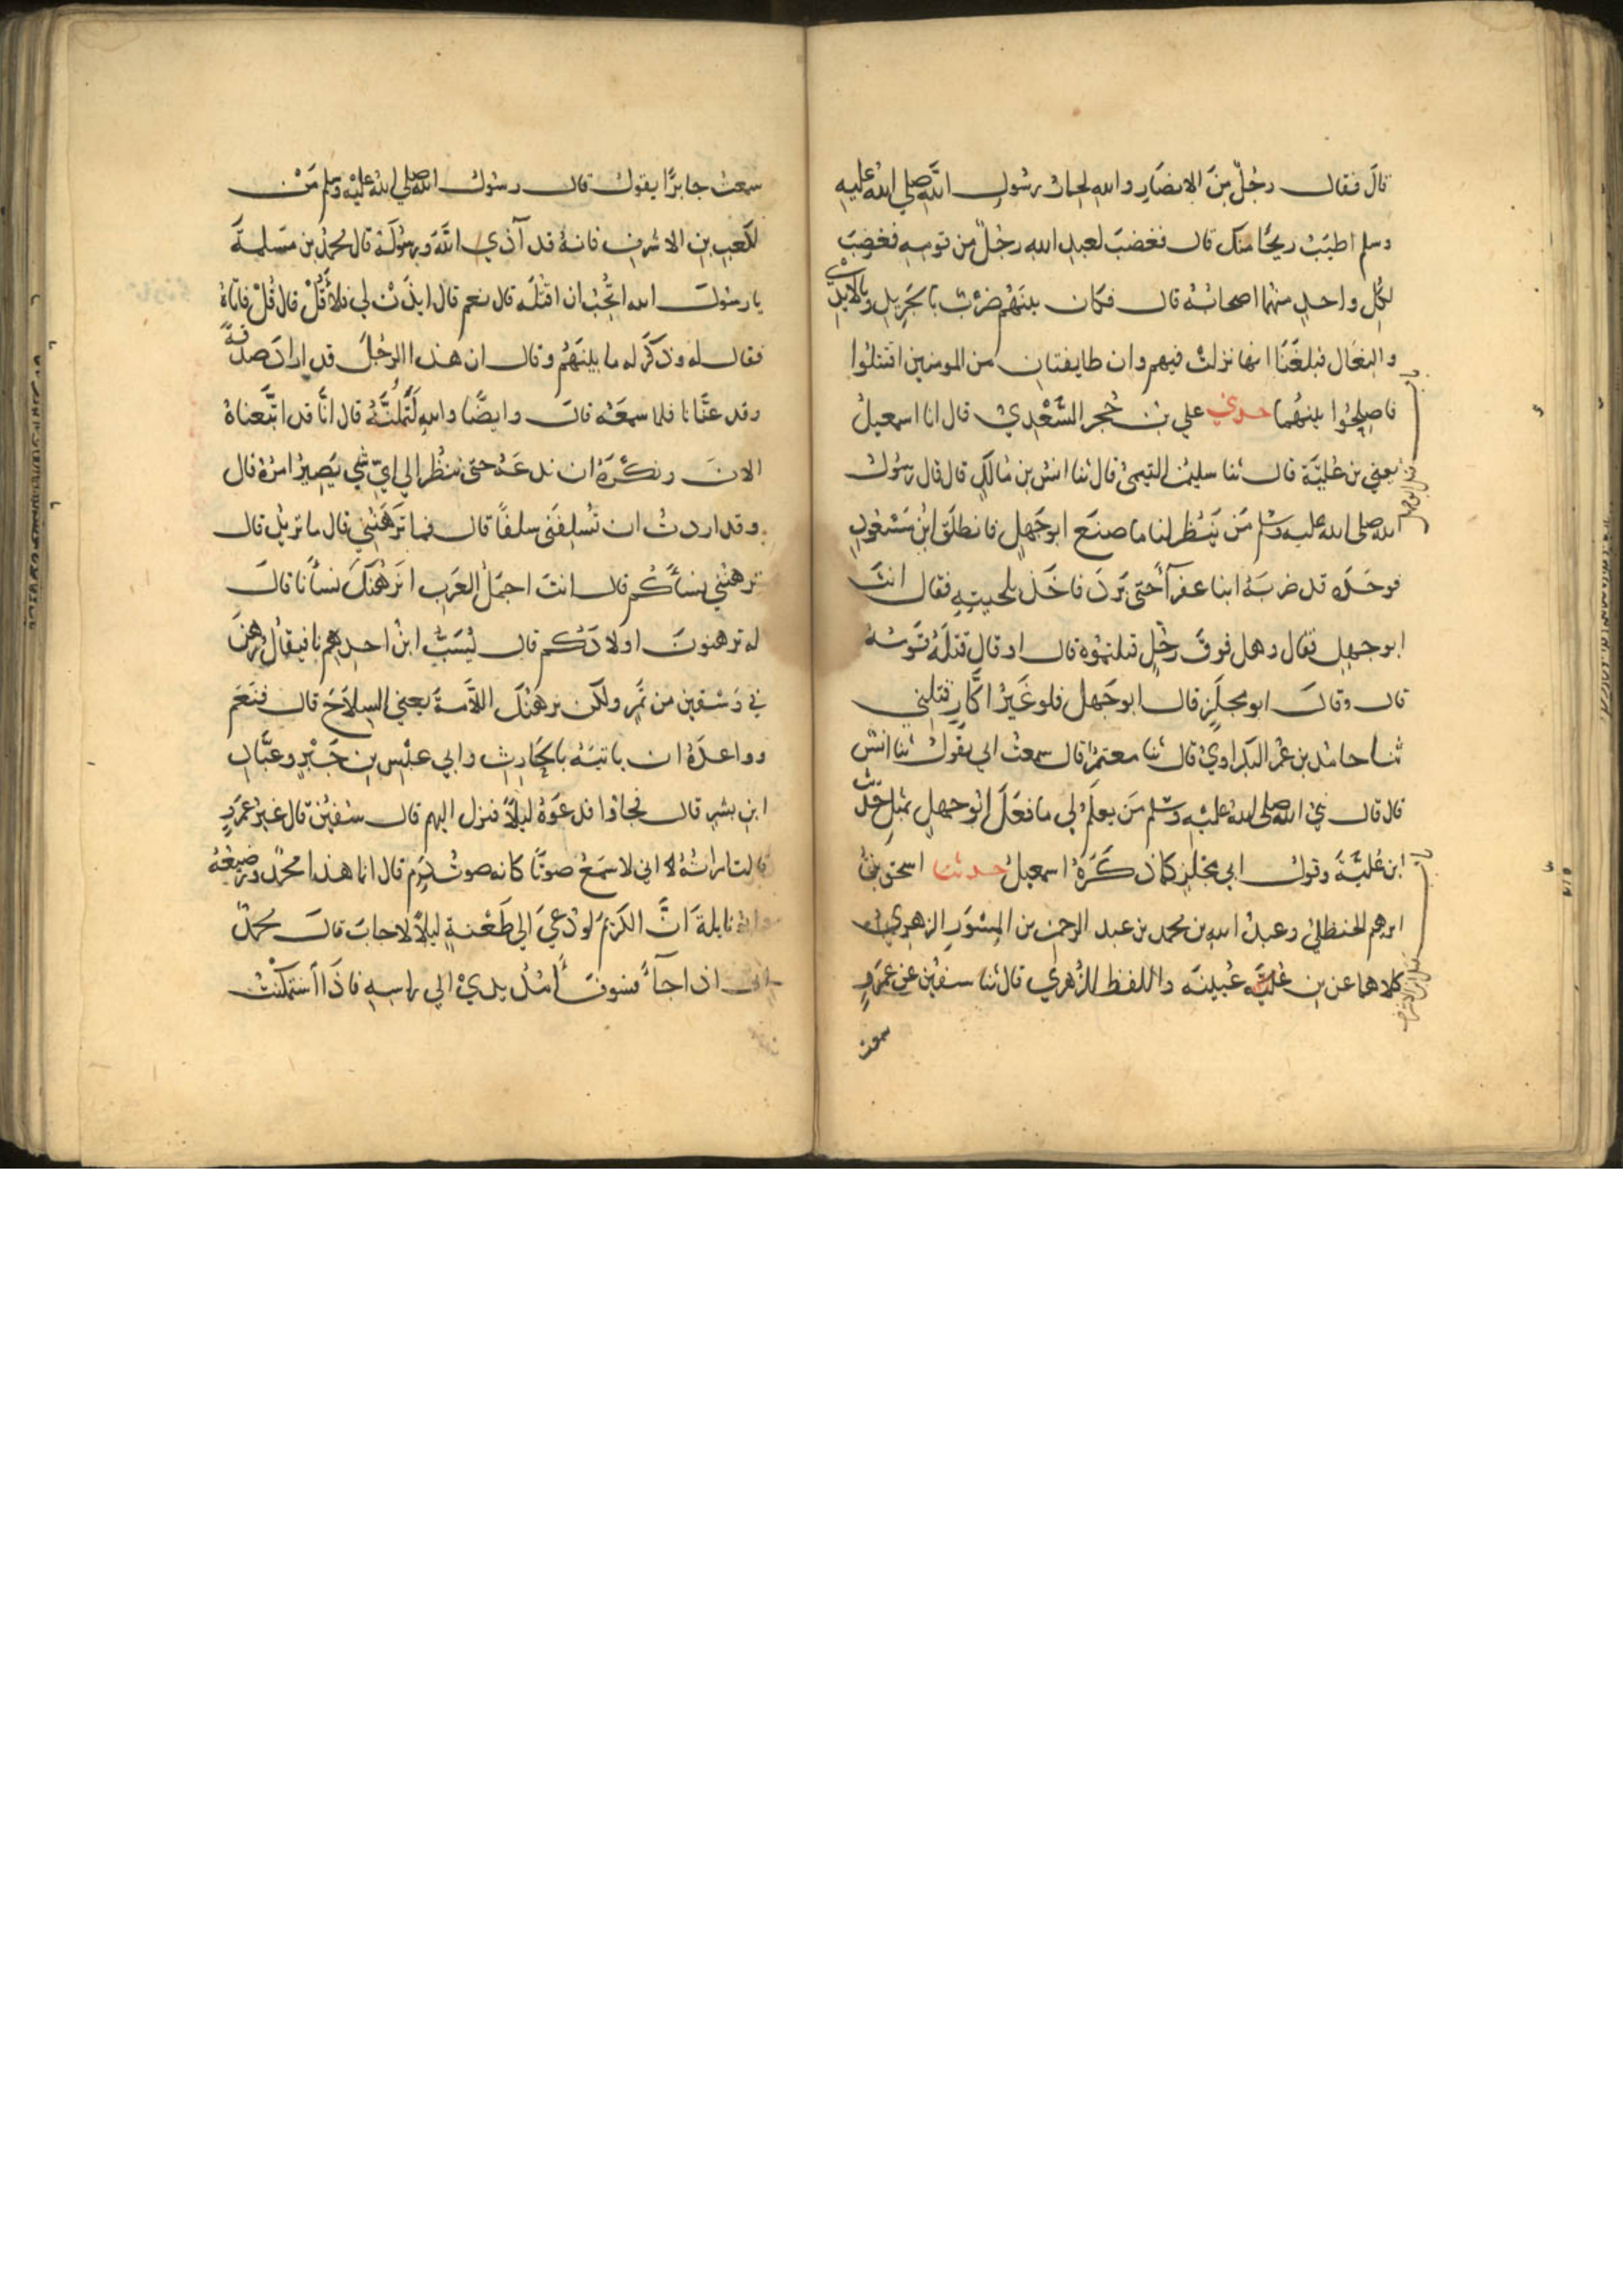 قال فقال رجُلٌ مِنَ الانصَارِ والله لحمارُ رسُولِ اللهِ صلى اللهُ عليهِ
وسلم اطيَبُ ريحًا منك قال فغضبَ لعبدِ اللهِ رجُلٌ من قومِهِ فغضِبَ
لكُلِّ واحدٍ منهُما اصحابُهُ قال فكان بينَهُم ضَرْبٌ بالجَرِيدِ وبالايْدِي
والنعَال فبلغَنَا انها نزلتْ فيهم وان طايفتانِ من المومنين اقتتلوا
فاصلِحُوا بينهُما حدثني علي بنُ حُجرٍ السَّعْدِيُّ قال انا اسمعيلُ
يعني بن عُليّة قال ثنا سليمنُ التيمىُّ قال ثنا انسُ بن مَالكٍ قال قال رسُولُ
الله صلى الله عليه وسلم مَن يَنْظُر لنا ما صنَع ابو جَهلٍ فانطلَق ابْنُ مَسْعُودٍ
فوجَدَه قد ضربَهُ ابنا عفرآ حتى بَرَدَ فاخَذَ بلحيتِهِ فقال انتَ
ابو جهلٍ فقال وهل فوقَ رجُلٍ قتلتمُوه قال او قال قتلَهُ قَومُهُ
قال وقالَ ابو مجلَزٍ قال ابو جَهلٍ فلو غَيْرُ اكَّارٍ قتلني
ثنا حامدُ بن عمرَ البَكراويُّ قال ثنا معتمرٌ قال سمعتُ ابي يقولُ ثنا انسٌ
قال قال نبيُّ الله صلى الله عليه وسلم مَن يعلَمُ لي ما فعَلَ ابُو جهلٍ بمثلِ حَديثِ
ابن عُليَّةَ وقولِ ابي مجلزٍ كما ذكَرَهُ اسمعيلُ حدثنا اسحقُ بنُ
ابرهيم الحنظليُّ وعبدُ الله بن محمد بن عبد الرحمن بن المِسْوَرِ الزهريُّ
كلاهما عن بن عُيينَه واللفظ للزُهريِّ قال ثنا سفيٰن عن عَمرٍو
سمعت
باب قتل ابو جهل
سمعتُ جابرًا يقولُ قال رسُولُ الله صلى اللهُ عليْه وسلم مَنْ
لكَعبِ بنِ الاشرفِ فانهُ قد آذي اللهَ ورسُولَهُ قال محمدُ بن مسَلمةَ
يا رسُولَ الله اتحِبُّ ان اقتُلَه قال نعم قال ايذَنْ لي فلأَقُلْ قال قُلْ فاتاهُ
فقال له وذكَر له ما بينَهُم وقال ان هذا الرجُلَ قد ارادَ صدقةً
وقد عنَّانا فلما سمعَهُ قال وايضًا واللهِ لَتَمَلُّنَّهُ قال انّا قد اتّبَعناهُ
الانَ ونكْرَهُ ان ندعَهُ حتى ننظُر الي ايّ شي يَصِيرُ امرُهُ قال
وقد اردتُ ان تُسلِفَني سلفًا قال فما تَرهَنُني قال ما تريدُ قال
ترهنُني نسأَكُم قال انتَ اجمَلُ العَربِ انَرْهَنُكَ نسأنا قالَ
له ترهنونَ اولادَكُم قال يُسَبُّ ابنُ احدِهِم نا فيقالُ رُهِنَ
في وَسْقينِ من تمْرٍ ولكن نرهَنُكَ اللأْمةَ يعني السِلاَحَ قال فنَعَم
وواعدَهُ ان ياتيَهُ بالحَارِثِ وابي عبْسِ بنِ جَبْرٍ وعبَّادِ
ابنِ بشرٍ قال فجاؤا فدعَوهُ ليلاً فنزل اليهم قال سفيٰنُ قال غيرُ عمرٍو
قالت امراتُهُ له اني لاسمَعُ صوتًا كانه صوتُ دَمٍ قال انما هذا محمدٌ ورضيعُهُ
وابُو نايلةَ انَّ الكَريمَ لو دُعِيَ الي طَعْنةٍ ليلاً لاجابَ قالَ محمدٌ
اني اذا جآءَ فسوفَ أَمُدُّ يديَّ الي راسِهِ فاذَا اسْتَمكَنْتُ